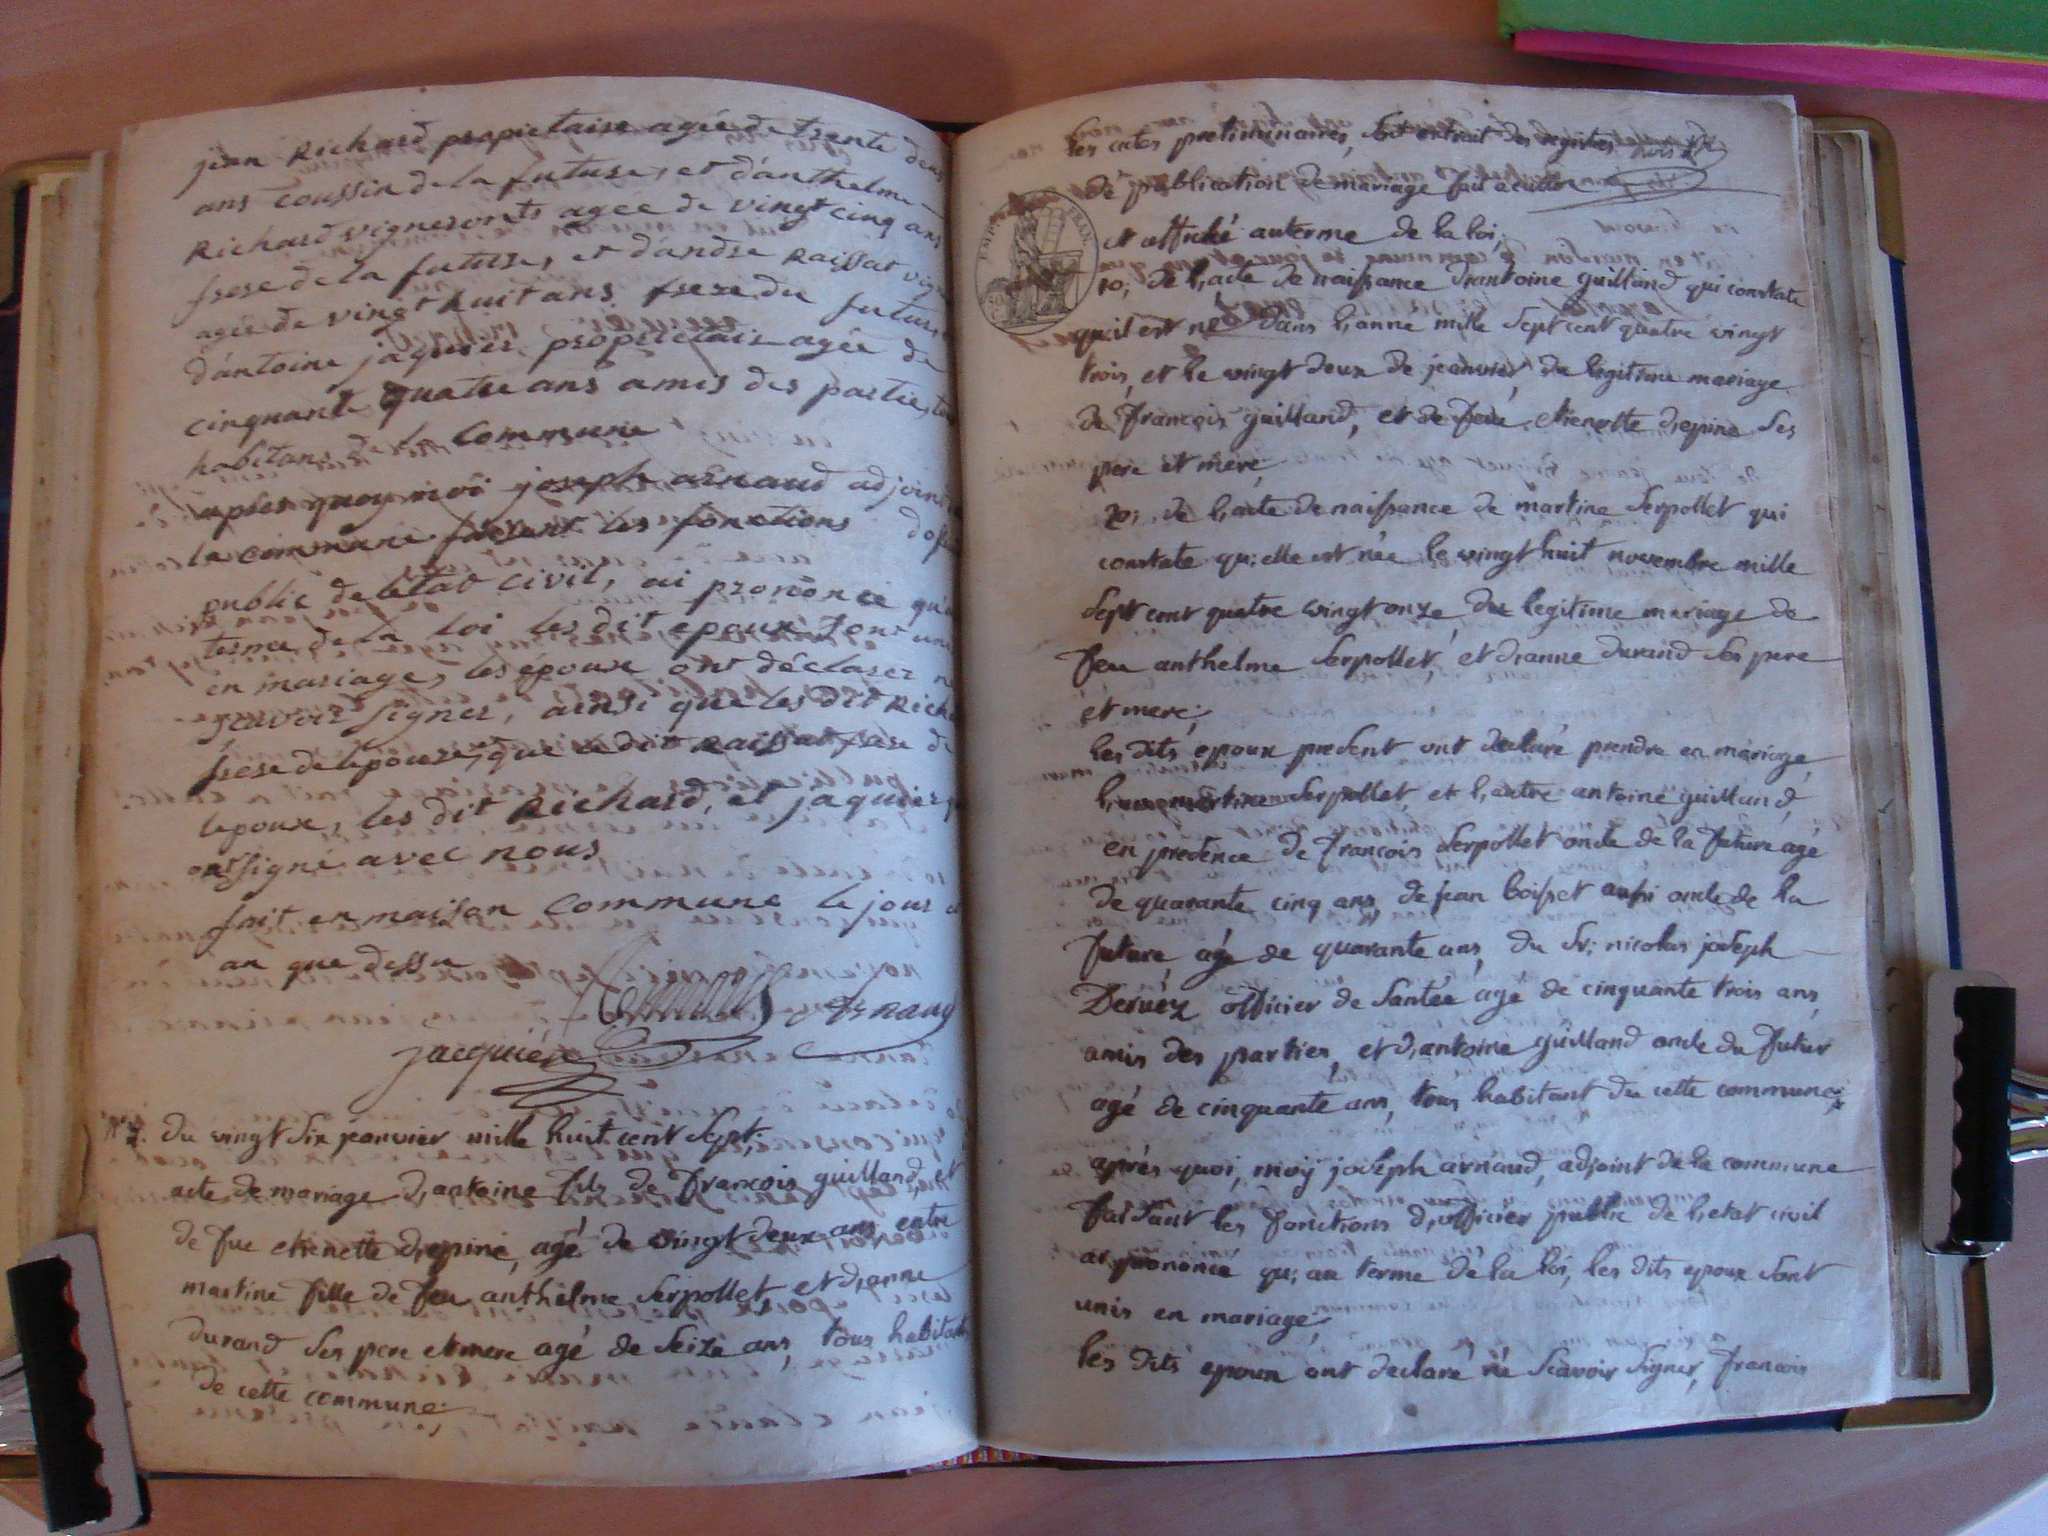 jean Richard propietaire agée de trente deux
ans coussin de la future, et d'anthelme
Richard vigneronts agee de vingt cinq ans
frere de la future, et d'andre Raissat
agée de vingt huit ans frere du futur,
d'antoine jaquier propietaire agée de
cinquante quatre ans amis des parties
habitans de la commune
apres quoy moi joseph arnaud adjoint
la commune faisant les fonctions
public de l'etat civil, ai prononcé
terme de la loi les dit epoux sont unis
en mariage, les époux ont déclarez
scavoir signer, ainsi que les dit
frere de lepouse, que le dit Raissat frere de
lepoux, les dit Richard, et jaquier
ont signé avec nous
fait en maison commune le jour
an que dessu
Arnaud
jacquier
du vingt six jeanvier mille huit cent sept;
acte de mariage d,antoine fils de francois guilland, et
de fue etienette d,epine, agé de vingt deux ans, entre
martine fille de feu anthelme Serpollet et d,anne
durand ses pere et mere agé de seize ans, tous habitants
de cette commune
les actes preliminaires, soit extrait des registres
de publication de mariage fait
et affiché au terme de la loi;
10; de l,acte de naissance d,antoine guilland qui constate
qu,il est né dans l,anne mille sept cent quatre vingt
trois, et le vingt deux de jeanvier, du legitime mariage
de francois guilland, et de feue etienette d,epine ses
pere et mere,
20; de l,acte de naissance de martine Serpollet qui
constate qu,elle est née le vingt huit novembre mille
sept cent quatre vingt onze, du legitime mariage de
feu anthelme Serpollet, et d,anne durand ses pere
et mere;
les dits epoux present ont declaré prendre en mariage,
l,un martine Serpollet, et l,autre antoine guilland,
en presence de francois Serpollet oncle de la future agé
de quarante cinq ans, de jean boisset aussi oncle de la
future agé de quarante ans, du Sr; nicolas joseph
Dervéz officier de santée agé de cinquante trois ans,
amis des parties, et d,antoine guilland oncle du futur
agé de cinquante ans, tous habitant du cette commune;
après quoi, moy joseph arnaud, adjoint de la commune
faisant les fonctions d,officier public de l,etat civil
ai prononcé qu,au terme de la loi, les dits epoux sont
unis en mariage;
les dits epoux ont declaré ne scavoir signer, francois